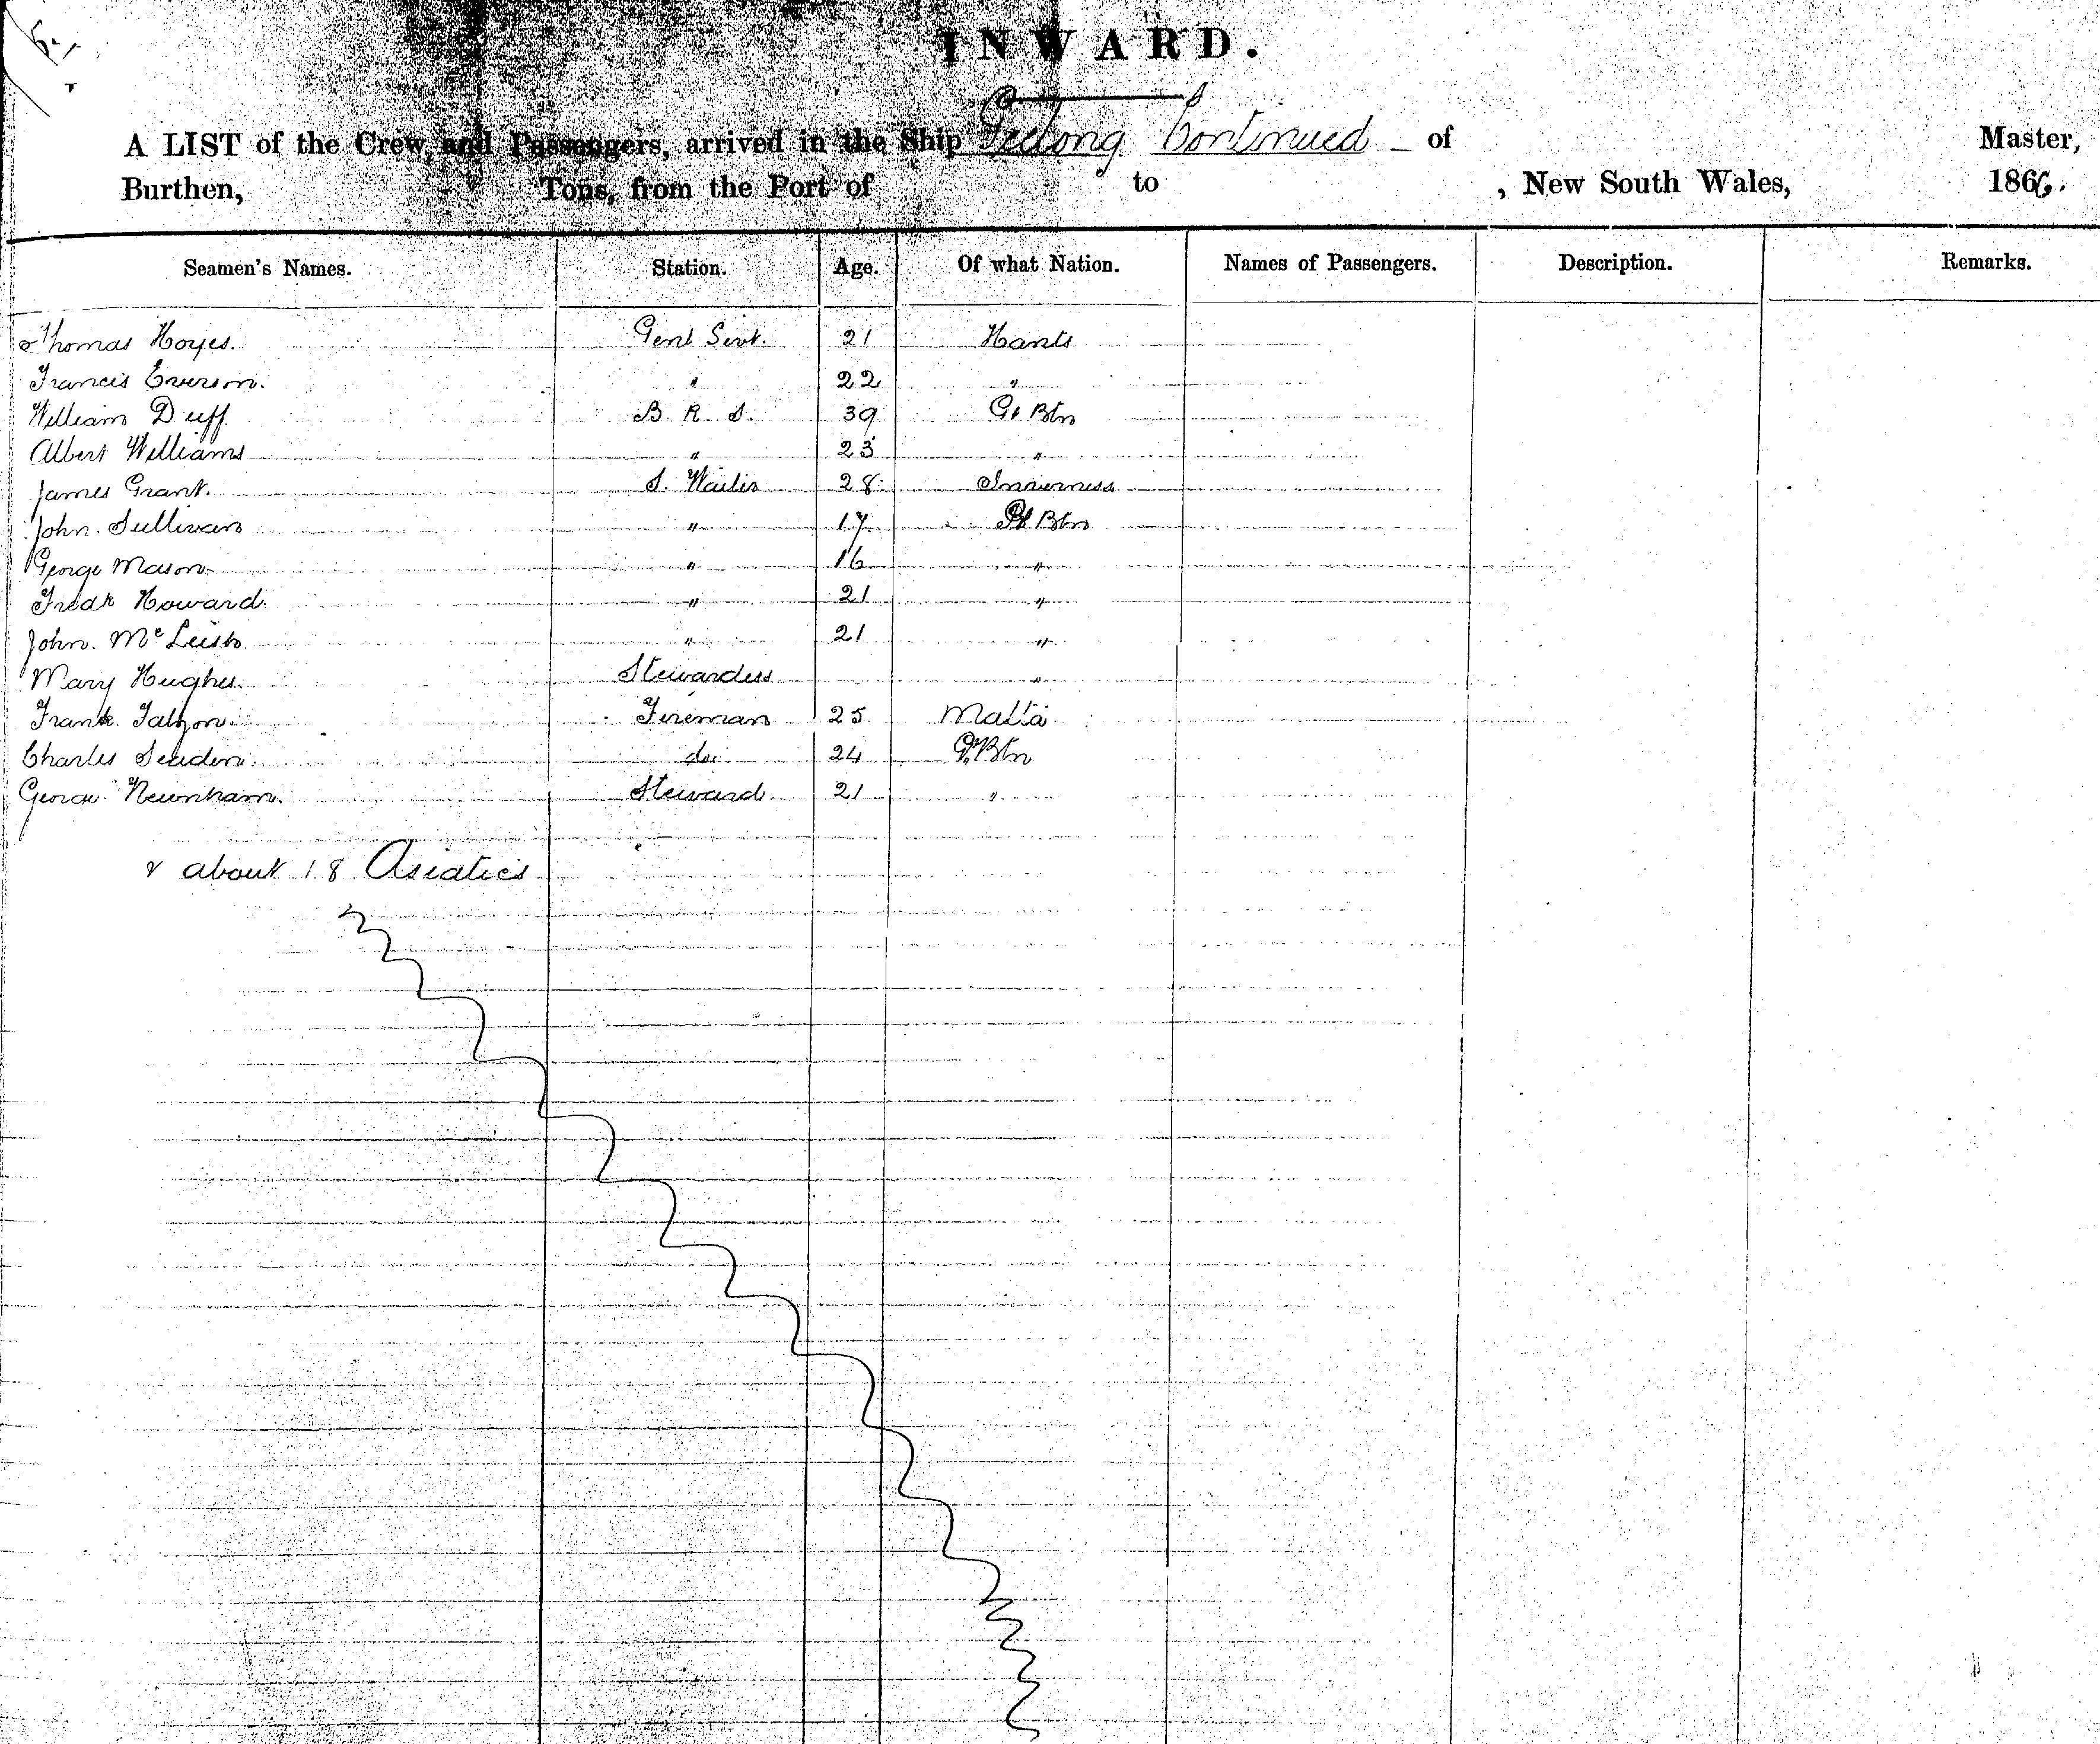 INWARD.
A LIST of the Crew, and Passengers, arrived in the Ship Geelong Continued – of Master,
Burthen, Tons, from the Port of to , New South Wales, 1866.
Seamen's Names. Station. Age. Of what Nation. Names of Passengers. Description. Remarks.
Thomas Hoyes. Genl Servt. 21 Hants
Francis Everson. " 22 "
William Duff. B R S. 39 Gt Btn
Albert Williams " 23 "
James Grant. S. Waiter 28 Inverness
John Sullivan " 17 Gt Btn
George Mason " 16 "
Fredk Howard. " 21 "
John. McLeish " 21 "
Mary Hughes. Stewardess "
Frank Fireman 25 Malta
Charles do. 24 Gt Btn
George Newnham. Steward. 21 "
& about 18 Asiatics